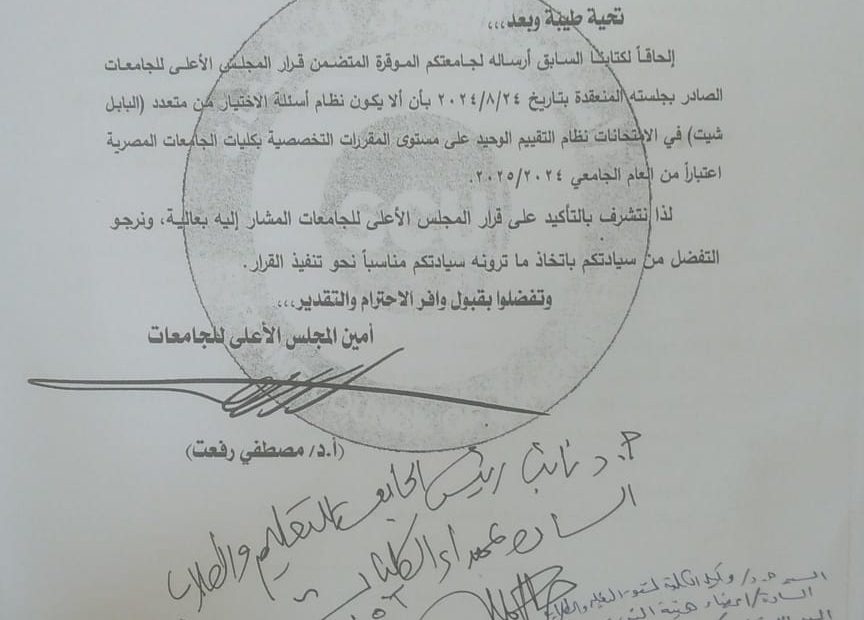 تحية طيبة وبعد،،،
إلحاقاً لكتابنا السابق أرساله لجامعتكم الموقرة المتضمن قرار المجلس الأعلى للجامعات
الصادر بجلسته المنعقدة بتاريخ ٢٠٢٤/٨/٢٤ بأن ألا يكون نظام أسئلة الاختيار من متعدد (البابل
شيت) في الامتحانات نظام التقييم الوحيد على مستوى المقررات التخصصية بكليات الجامعات المصرية
اعتباراً من العام الجامعي ٢٠٢٥/٢٠٢٤.
لذا نتشرف بالتأكيد على قرار المجلس الأعلى للجامعات المشار إليه بعالية، ونرجو
التفضل من سيادتكم باتخاذ ما ترونه سيادتكم مناسباً نحو تنفيذ القرار.
وتفضلوا بقبول وافر الاحترام والتقدير،،،
أمين المجلس الأعلى للجامعات
(أ.د/ مصطفي رفعت)
أ.د نائب رئيس الجامعة للتعليم والطلاب
السادة عمداء الكليات